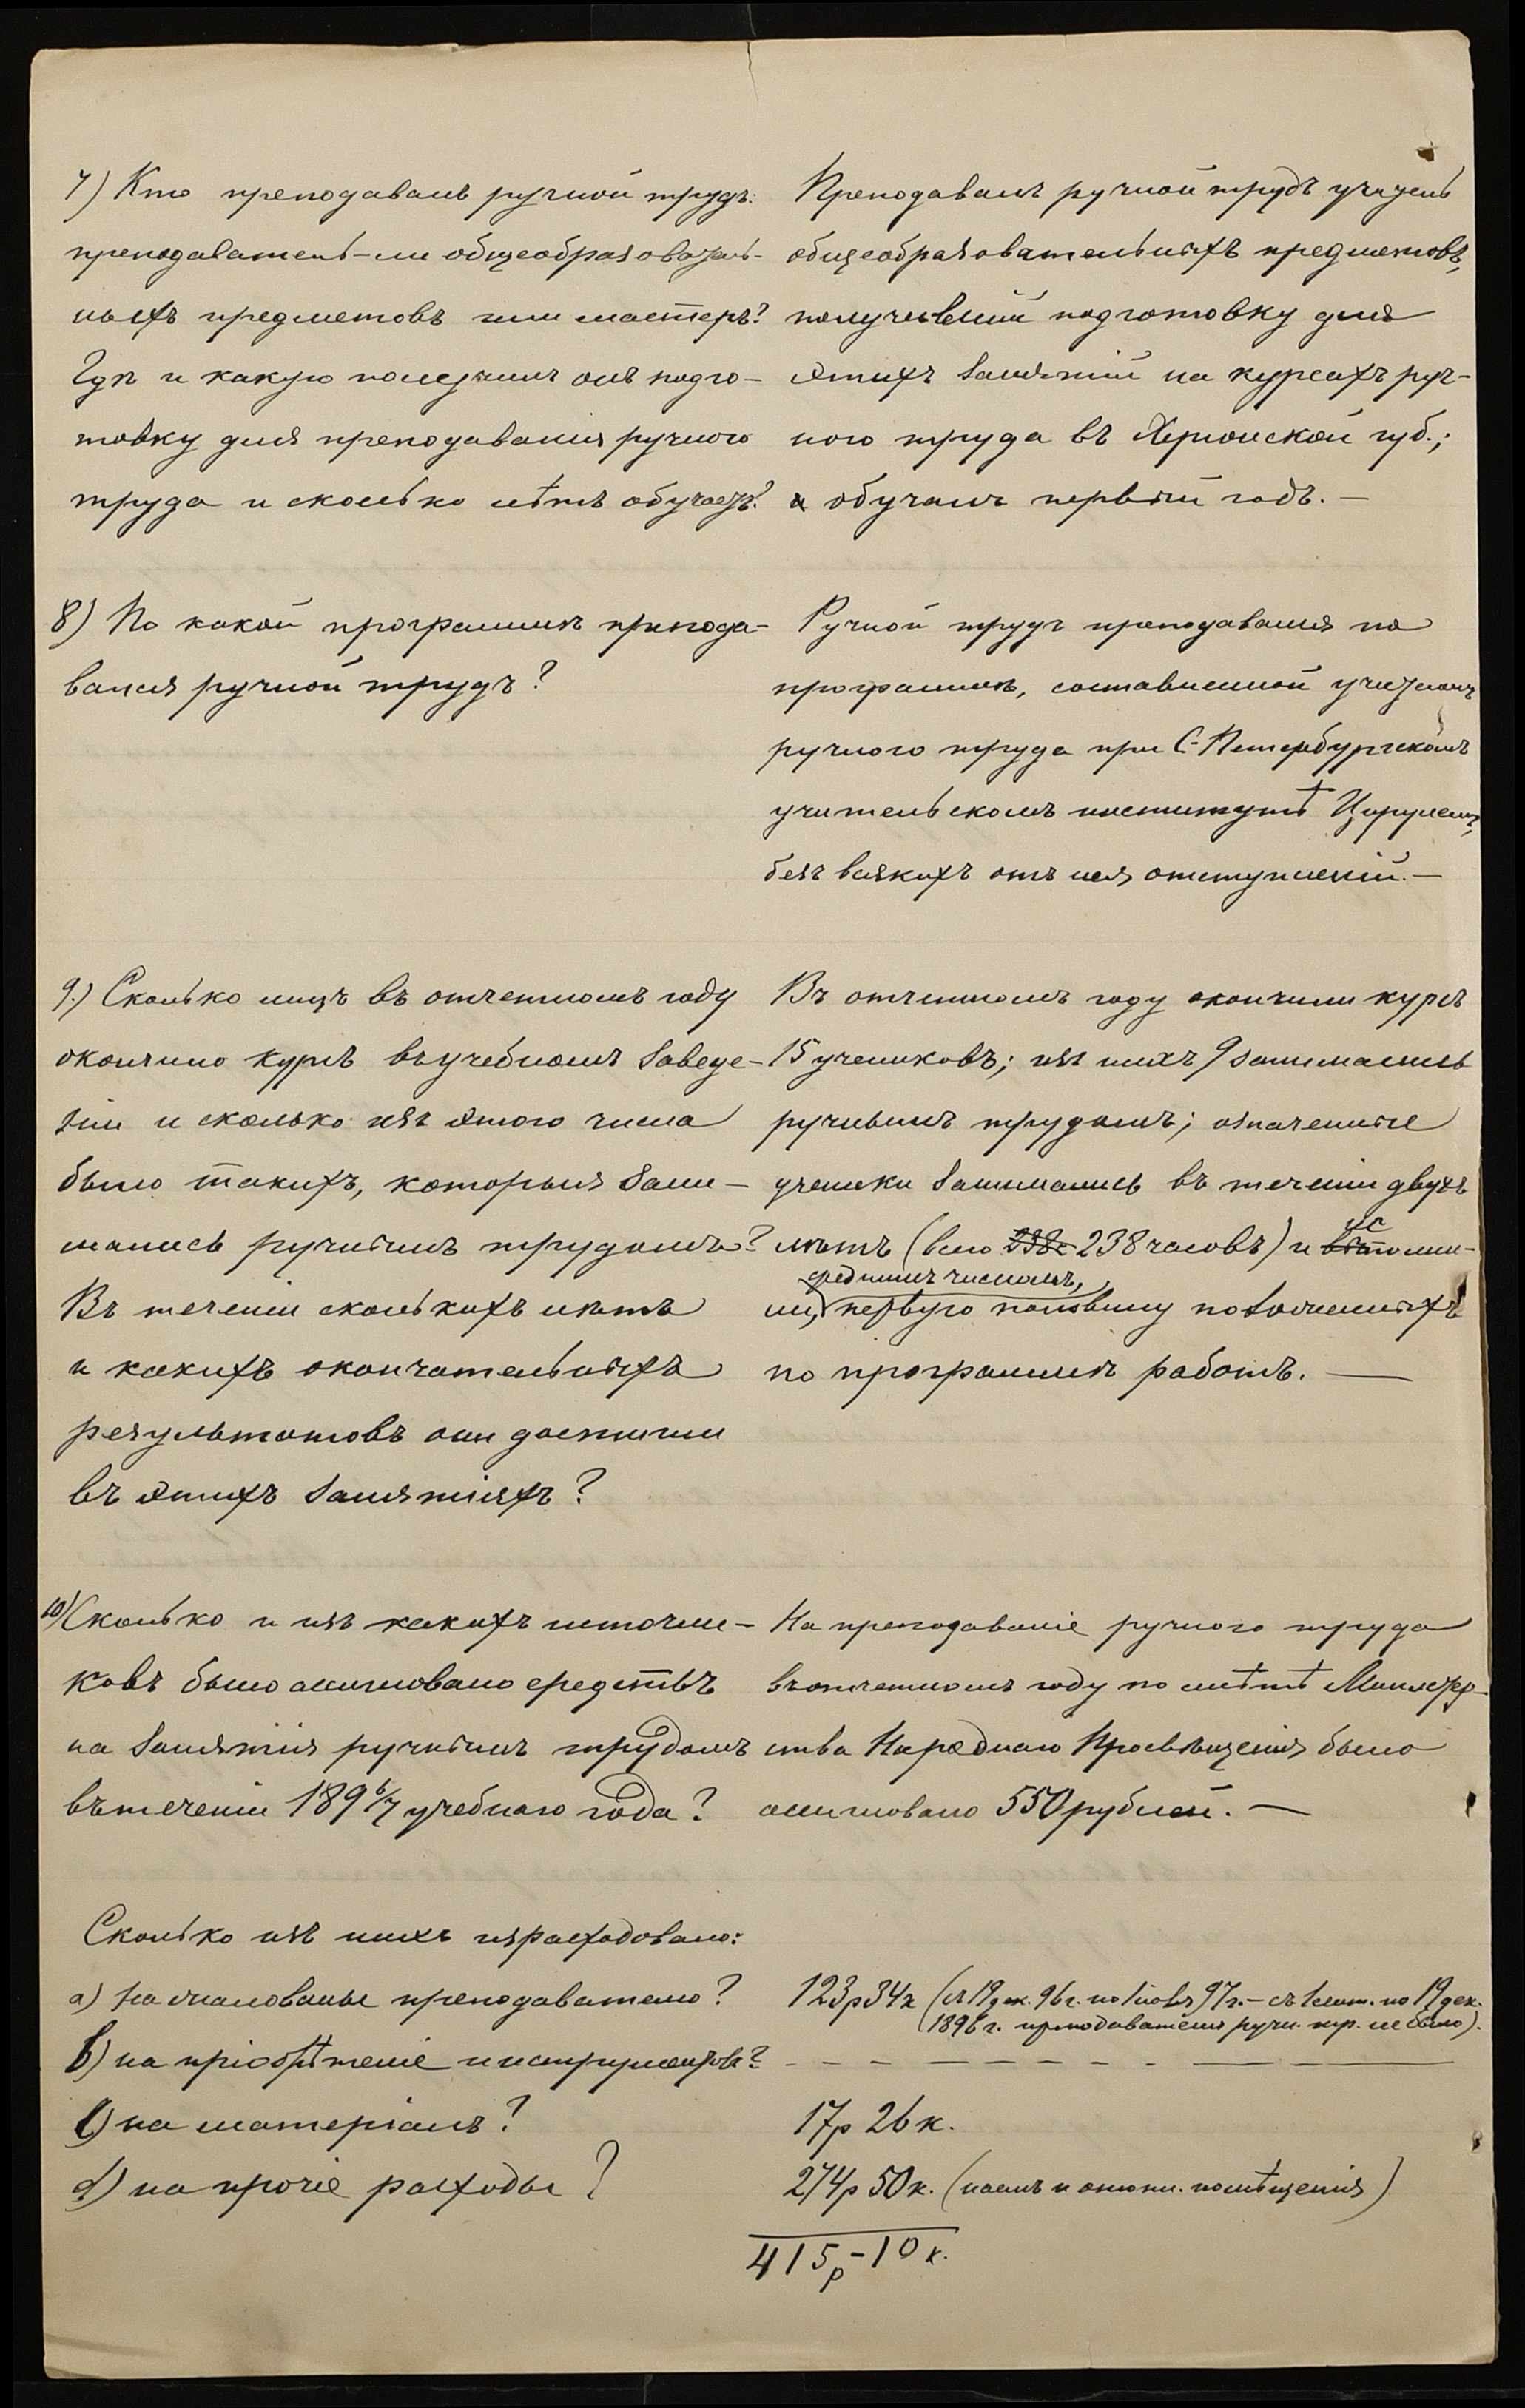 7) Кто преподавалъ ручной трудъ:
преподаватель-ли общеобразователь-
ныхъ предметовъ или мастеръ?
Гдѣ и какую получилъ онъ подго-
товку для преподаванія ручного
труда и сколько лѣтъ обучаетъ?
Преподавалъ ручной трудъ учитель
общеобразовательныхъ предметовъ,
получившій подготовку для
этихъ занятій на курсахъ руч-
ного труда въ Херсонской губ.;
и обучалъ первый годъ. —
8) По какой программѣ препода-
вался ручной трудъ?
Ручной трудъ преподавался по
программѣ, составленной учителемъ
ручного труда при С-Петербургскомъ
учительскомъ институтѣ Цирулемъ,
безъ всякихъ отъ нея отступленій. —
9.) Сколько лицъ въ отчетномъ году
окончило курсъ въ учебномъ заведе-
ніи и сколько изъ этого числа
было такихъ, которыя зани-
мались ручнымъ трудомъ?
Въ теченіи сколькихъ лѣтъ
и какихъ окончательныхъ
результатовъ они достигли
въ этихъ занятіяхъ?
Въ отчетномъ году окончили курсъ
15 учениковъ; изъ нихъ 9 занимались
ручнымъ трудомъ; означенные
ученики занимались въ теченіи двухъ
лѣтъ (всего 238 238 часовъ) и исполни-
среднимъ числомъ,
ли, первую половину положенныхъ
по программѣ работъ. —
10) Сколько и изъ какихъ источни-
ковъ было ассигновано средствъ
на занятія ручнымъ трудомъ
въ теченіи 1896/7 учебнаго года?
На преподаваніе ручного труда
въ отчетномъ году по смѣтѣ Министер-
ства Народнаго Просвѣщенія было
ассигновано 550 рублей. —
Сколько изъ нихъ израсходовано:
a) На жалованье преподавателю?
123р 34к (съ 19 дек. 96 г. по 1 97 г. – съ 1 сент. по 19 дек.
1896 г. преподавателя ручн. тр. не было).
b) на пріобрѣтеніе инструментовъ?
- - - - - - - - - -
c) на матеріалъ?
17р 26 к.
d) на прочіе расходы?
274р 50к. (наемъ и отопл. помѣщенія)
415р-10к.